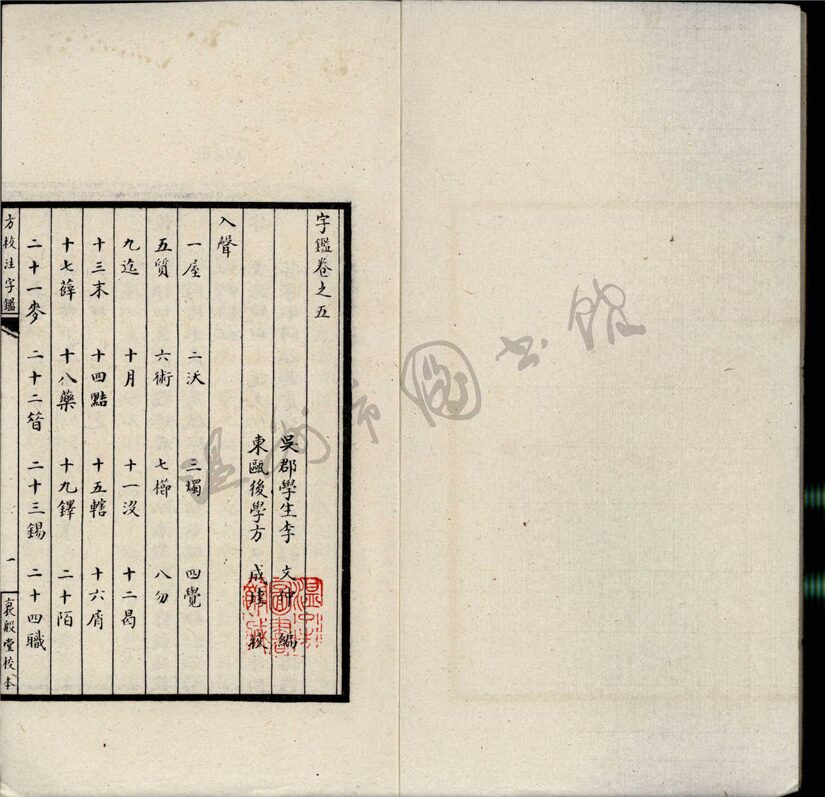 字鑑卷之五
吳郡學生李 文仲 編
東甌後學方 成珪 校
入聲
一屋 二沃 三燭 四覺
五質 六術 七櫛 八勿
九迄 十月 十一沒 十二曷
十三末 十四黠 十五轄 十六屑
十七薛 十八藥 十九鐸 二十陌
二十一麥 二十二昔 二十三錫 二十四職
方校注字鑑
一
裒殷堂校本
温州市圖书館